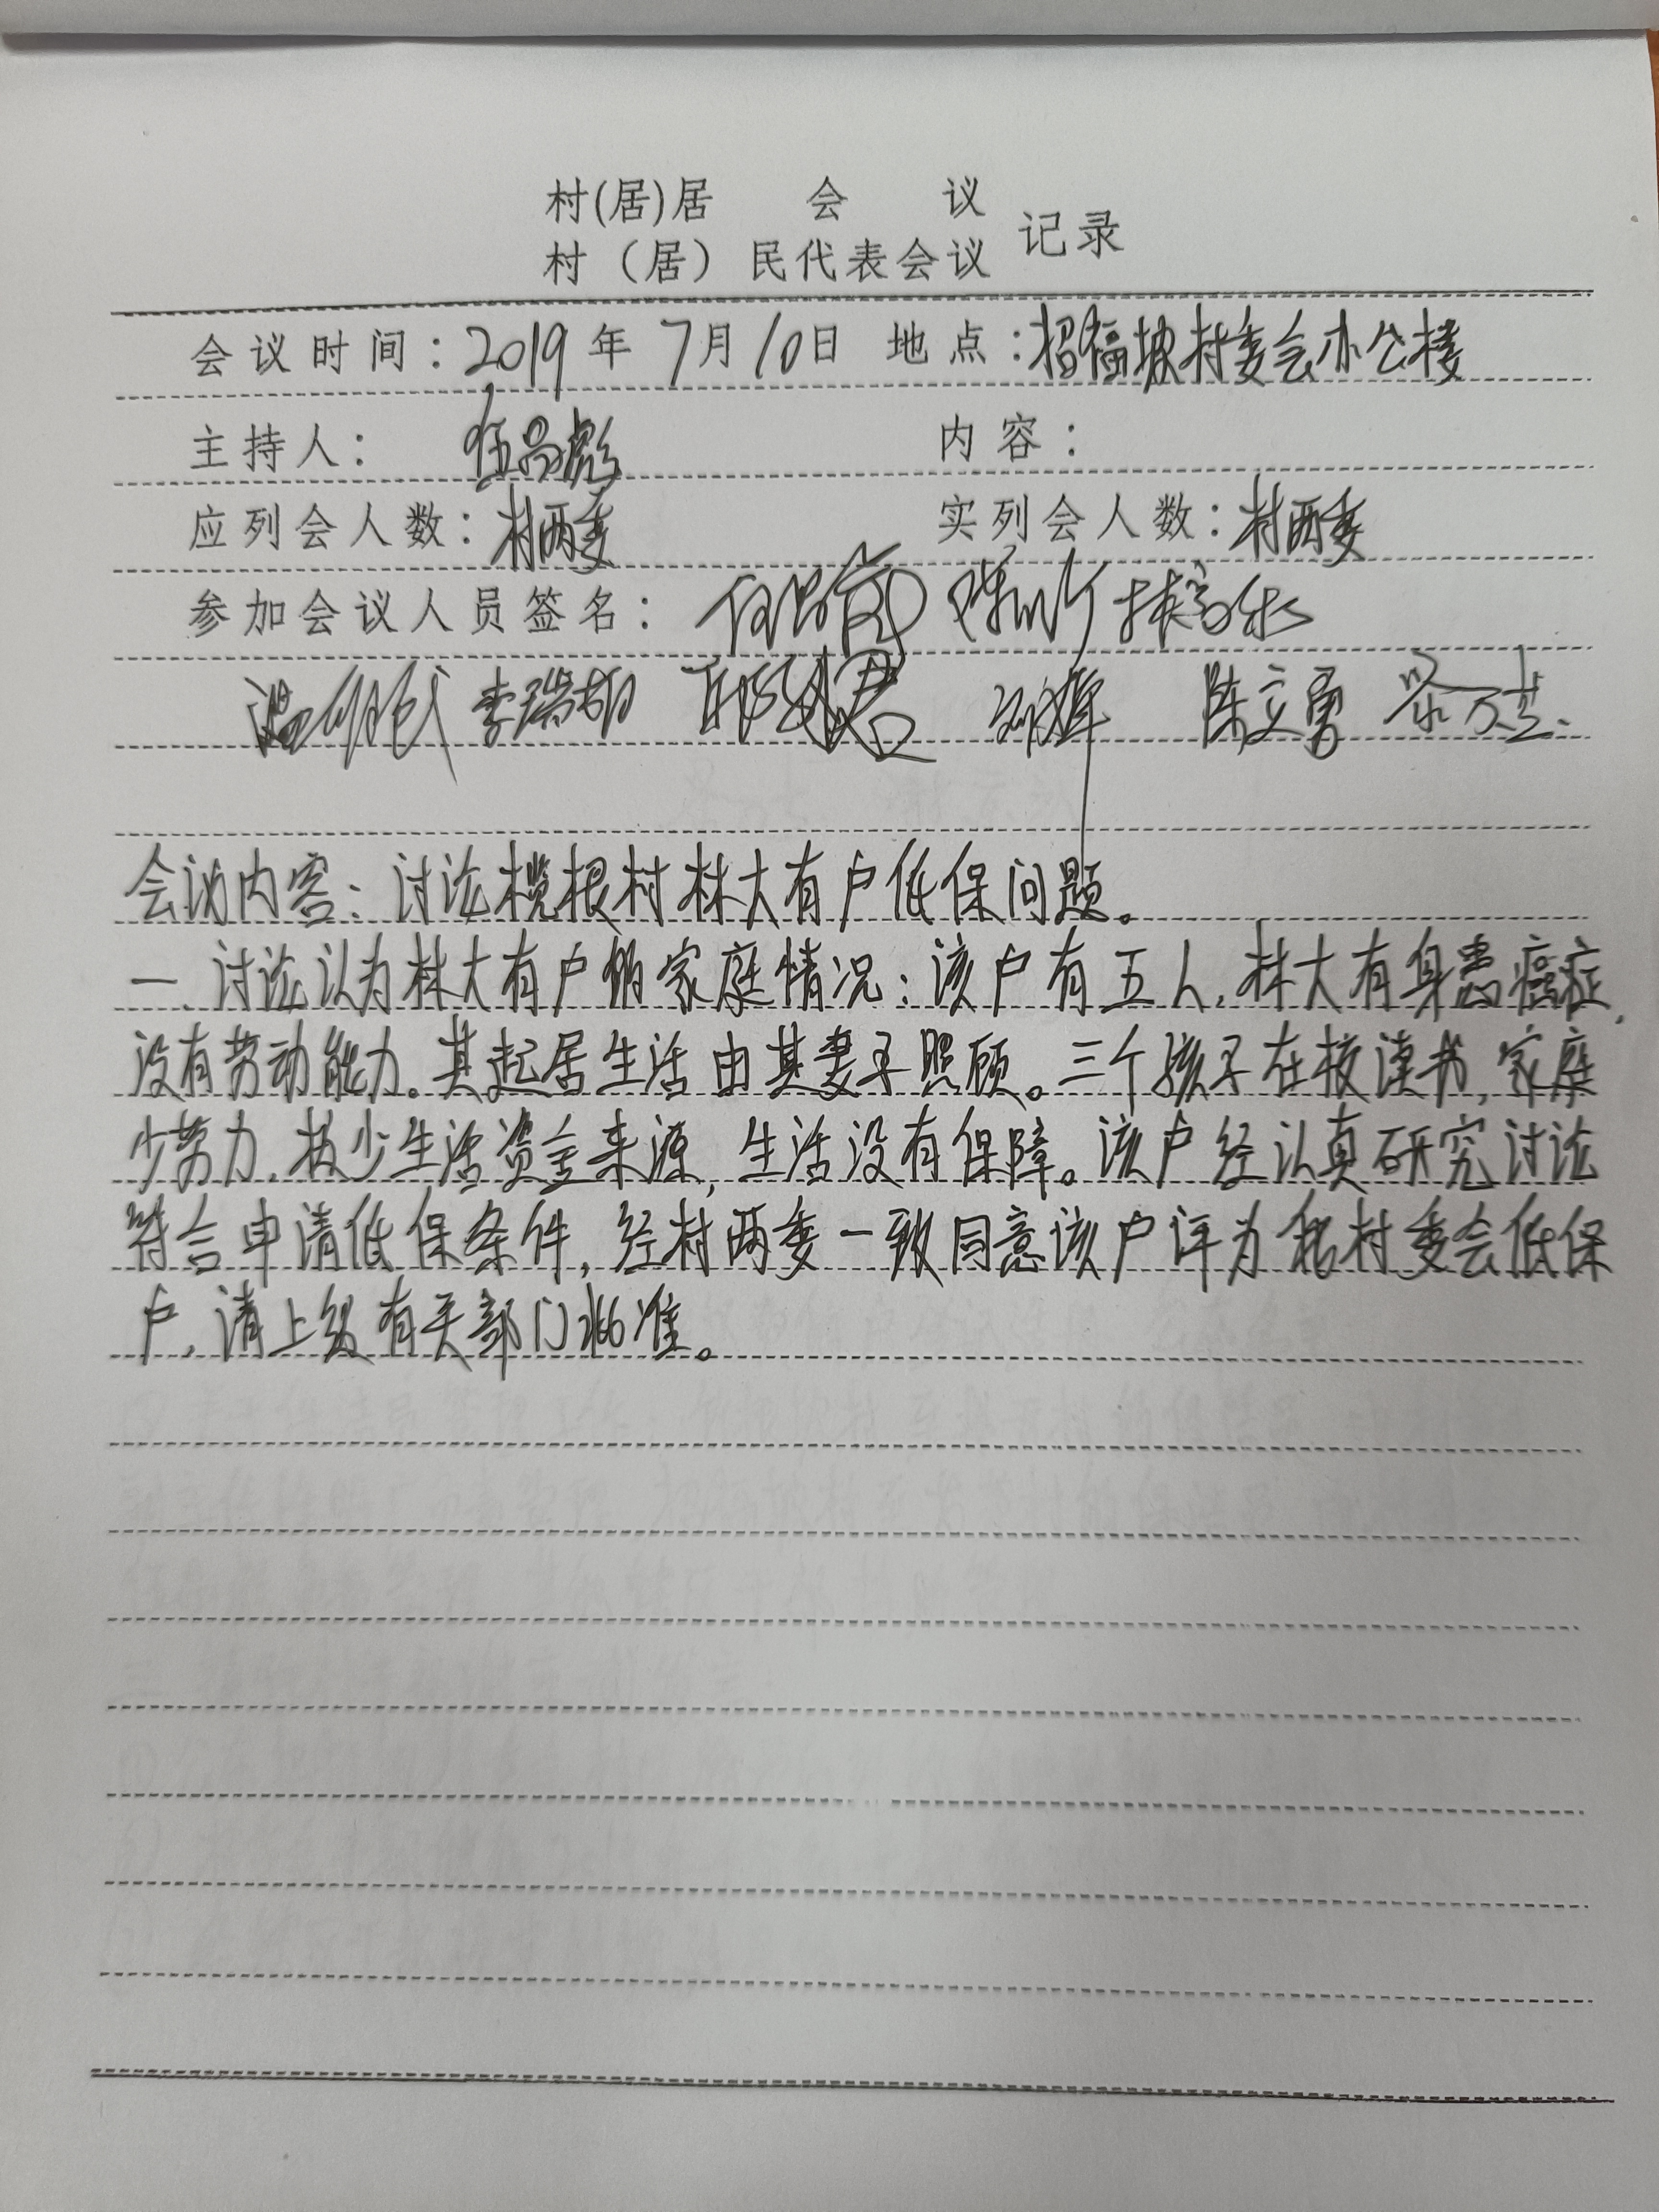 村(居)居 会 议
村（居）民代表会议 记录
会议时间：2019年7月10日 地点：招福坡村委会办公楼
主持人：伍昌彪 内容：
应列会人数：村两委 实列会人数：村两委
参加会议人员签名：
李瑞 陈立勇
会议内容：讨论榄根村林大有户低保问题。
一、讨论认为林大有户的家庭情况：该户有五人，林大有身患癌症，
没有劳动能力。其起居生活由其妻子照顾。三个孩子在校读书，家庭
少劳力，极少生活资金来源，生活没有保障。该户经认真研究讨论
符合申请低保条件，经村两委一致同意该户评为我村委会低保
户，请上级有关部门批准。